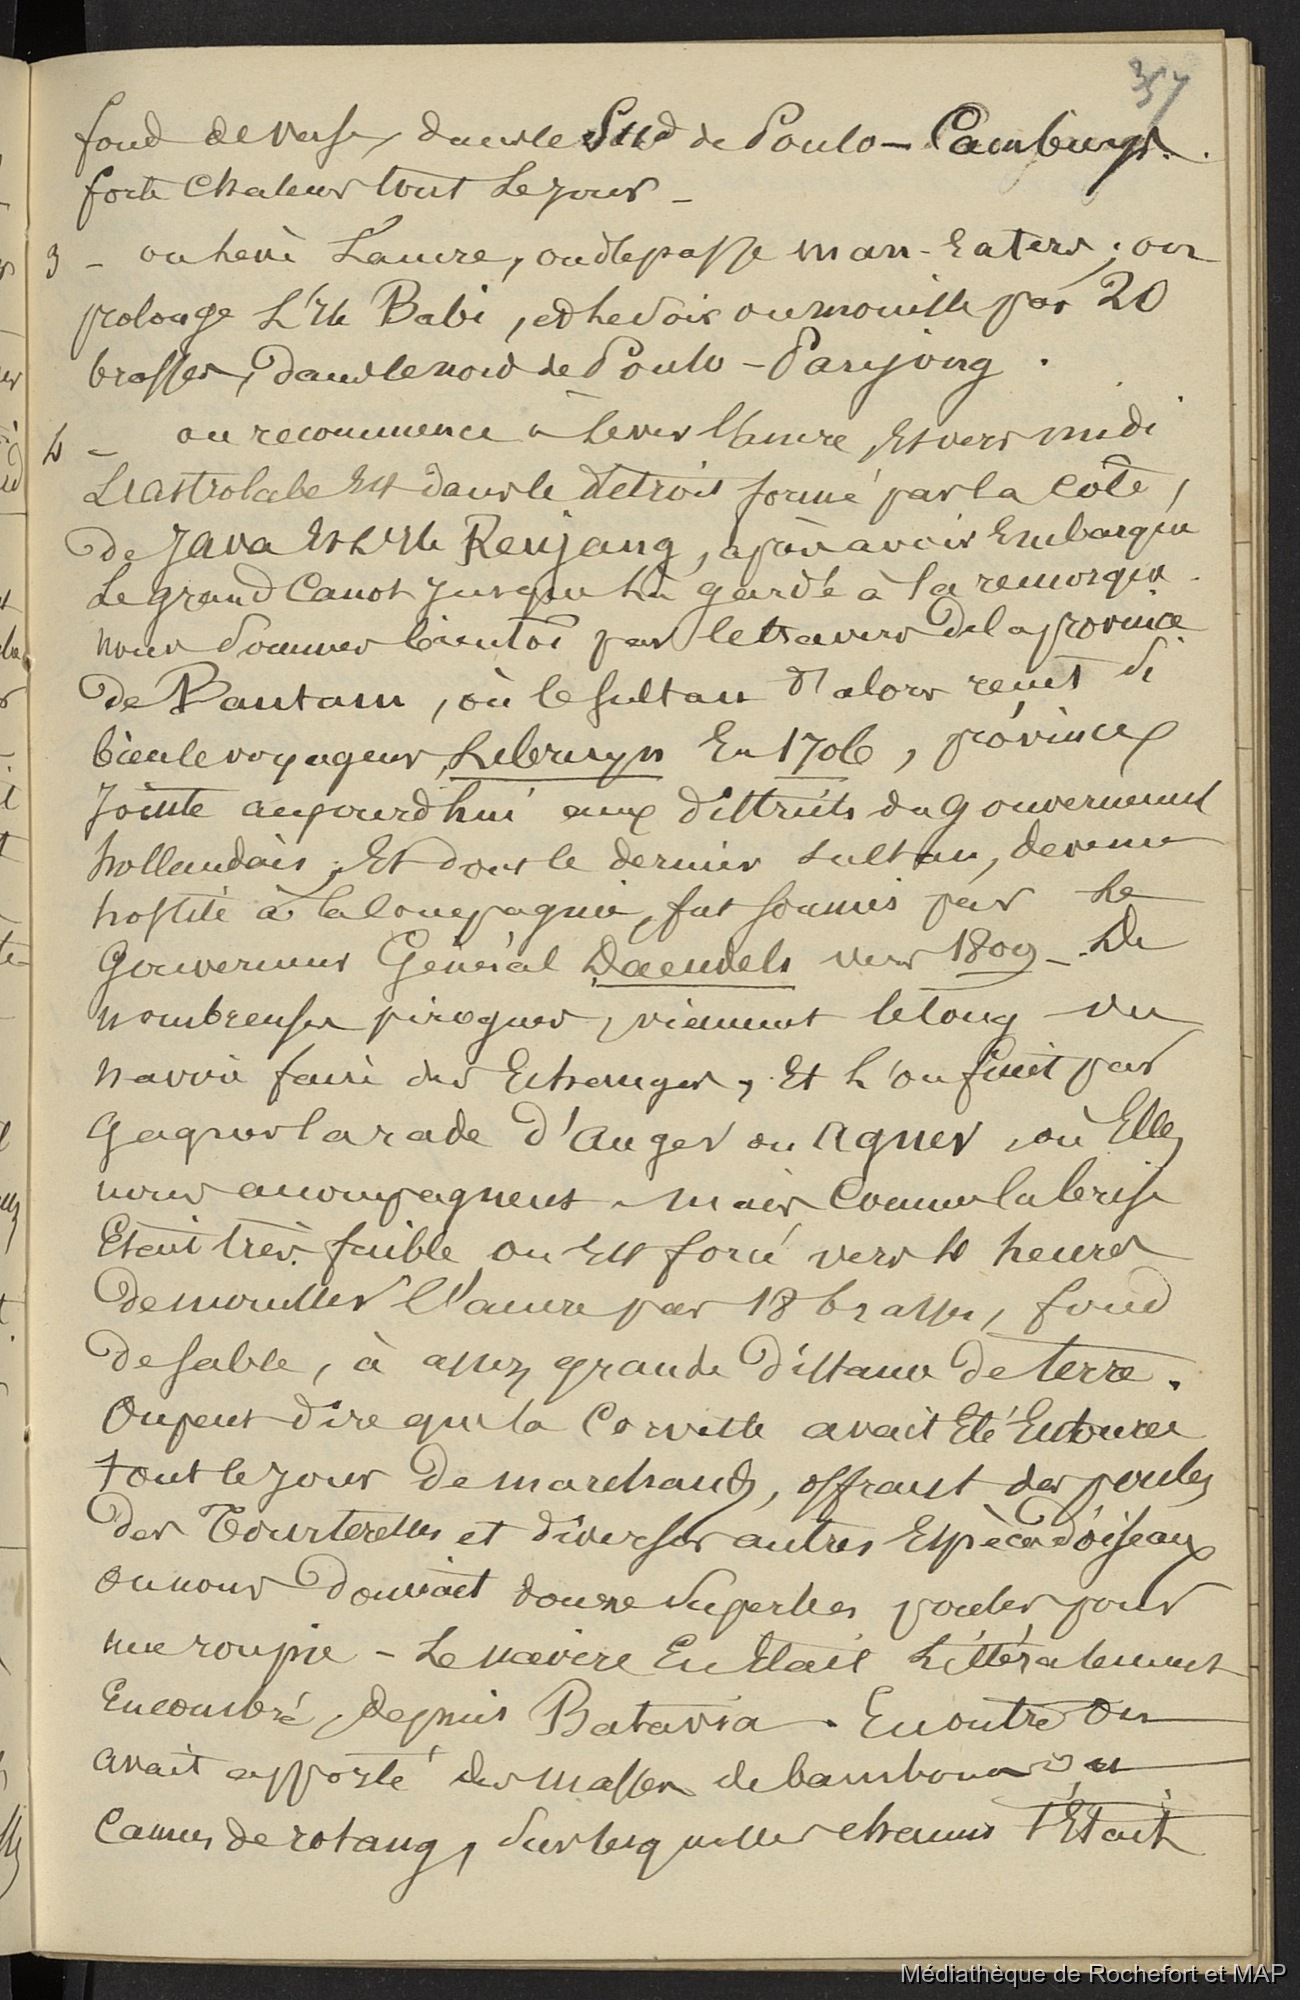 357
fond de vase, dans le Sud de Poulo-Cambuys.
forte chaleur tout le jour -
3 - on lève l'ancre, on dépasse man-Eaters ; on
prolonge l'Ile Babi, et le soir on mouille par 20
brasses, dans le nord de Poulo-Panjong.
4 - on recommence à lever l'ancre, Et vers midi
L'astrolabe Est dans le détroit formé par la côte,
de Java Et L'Ile Renjang, après avoir Embarqué
Le grand Canot jusque là gardé à la remorque.
nous sommes bientôt par le travers de la province
de Bantam, où le sultan d'alors reçut si
bien le voyageur Lebruyn En 1706, province
Jointe aujourd'hui aux districts du gouvernement
hollandais, Et dont le dernier sultan, devenu
hostile à la Compagnie, fut soumis par Le
Gouverneur Général Daendels vers 1809 - De
nombreuses pirogues, viennent le long du
navire faire des Echanges, Et l'on finit par
gagner la rade d'Anger ou Agner, où Elles
nous accompagnent. mais Comme la brise
Etait très faible on Est forcé vers 4 heures
de mouiller l'ancre par 18 brasses, fond
de sable, à assez grande distance de terre.
On peut dire que la Corvette avait Eté Entourée
tout le jour de marchands, offrant des poules
des Tourterelles et diverses autres Espèces d'oiseaux
on nous donnait douze superbes poules pour
une roupie - Le navire En Etait Littéralement
Encombré, depuis Batavia. En outre on
avait apporté des masses de bambous et
Cannes de rotang, sur lesquelles chacun s'Etait
Médiathèque de Rochefort et MAP